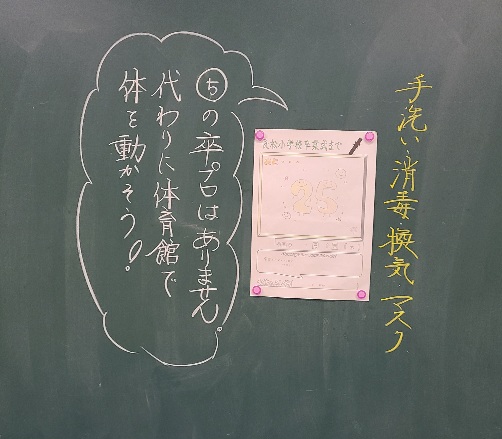 手洗い・消毒・換気・マスク
小学校卒業式まで
25
㋠の卒プロはありません。
代わりに体育館で
体を動かそう!